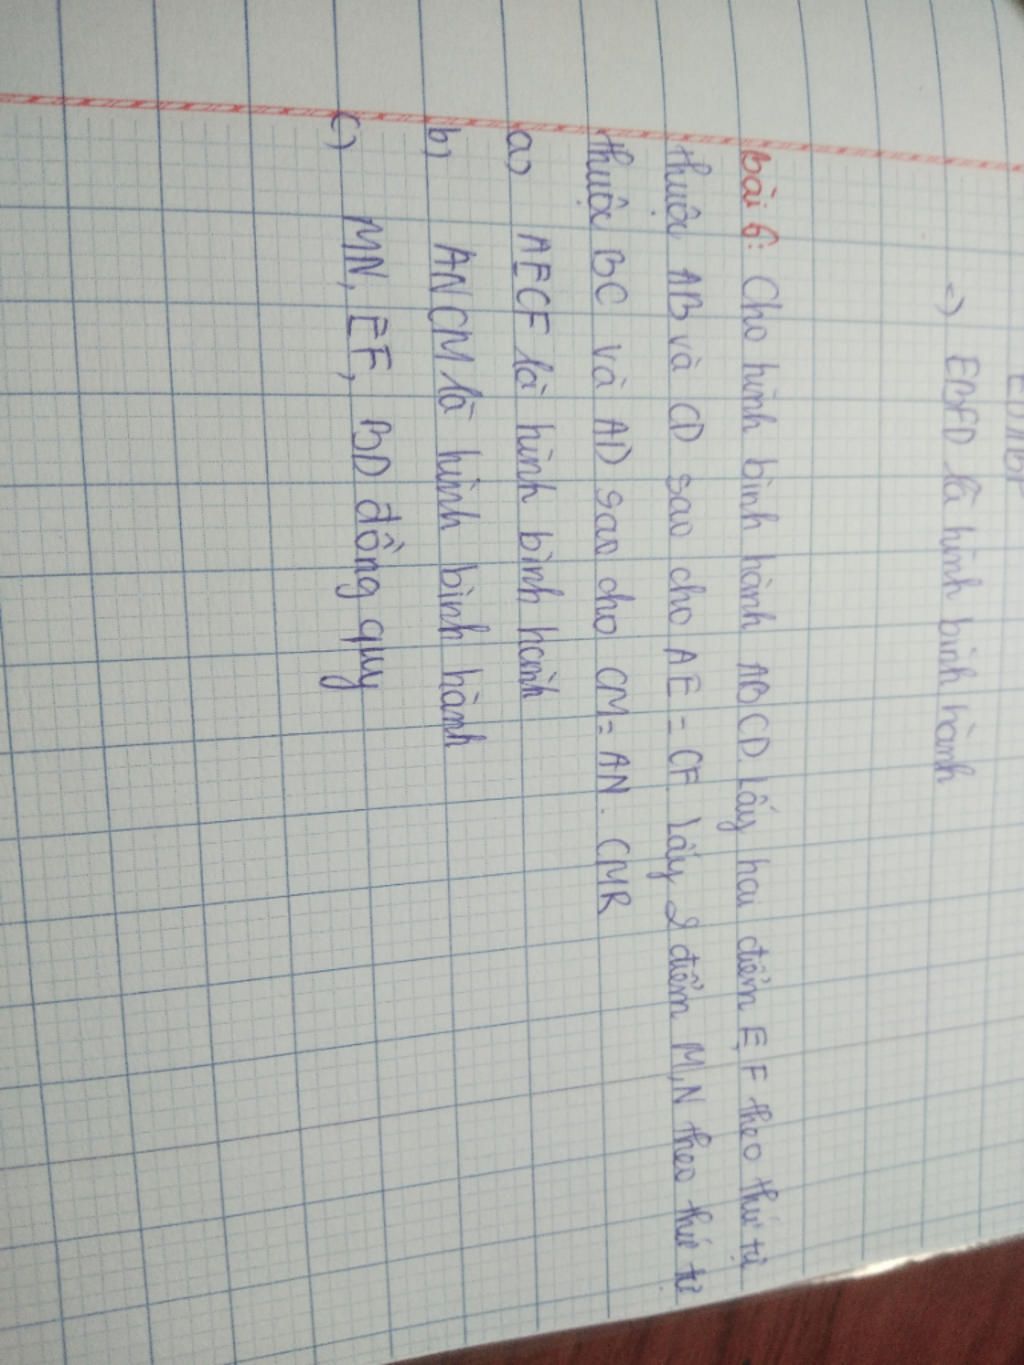 => EBFD là hình bình hành
Bài 6: Cho hình bình hành ABCD. Lấy hai điểm E, F theo thứ tự
thuộc AB và CD sao cho AE = CF. Lấy 2 điểm M, N theo thứ tự
thuộc BC và AD sao cho CM = AN. CMR
a) AECF là hình bình hành
b) ANCM là hình bình hành
c) MN, EF, BD đồng quy